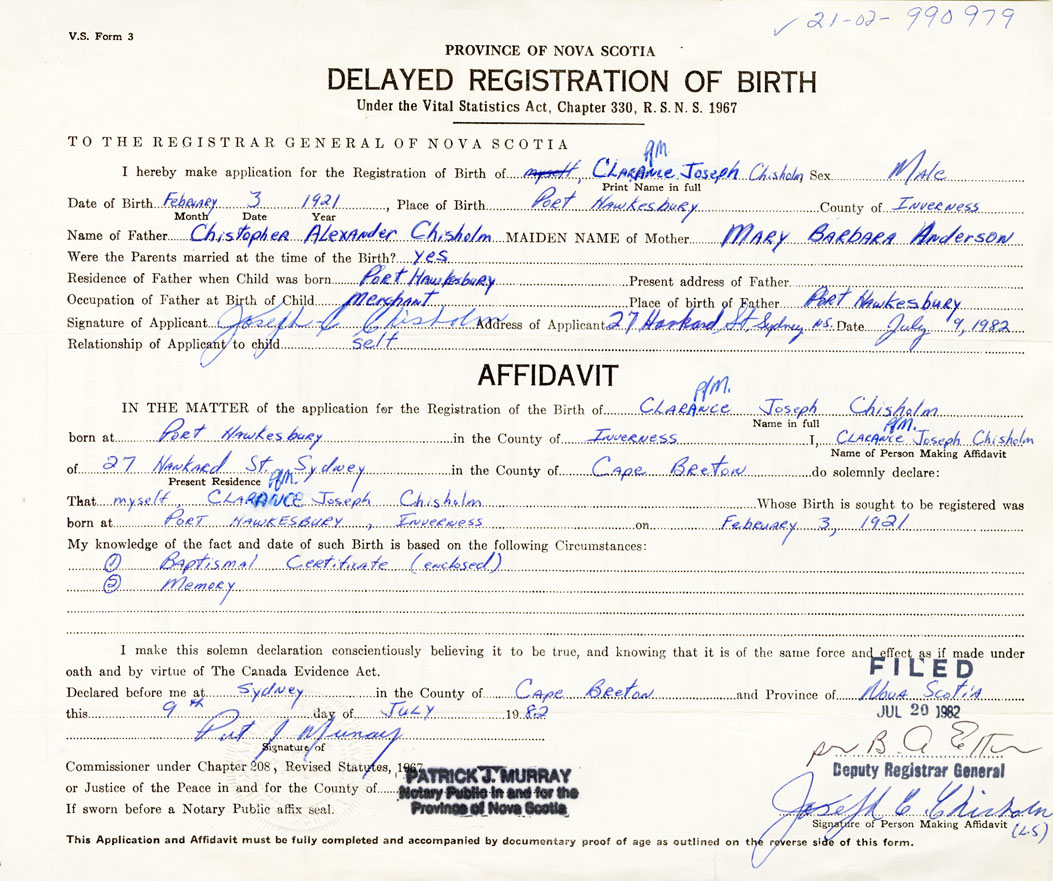 ✓ 21-02-990979
V.S. Form 3
PROVINCE OF NOVA SCOTIA
DELAYED REGISTRATION OF BIRTH
Under the Vital Statistics Act, Chapter 330, R.S.N.S. 1967
TO THE REGISTRAR GENERAL OF NOVA SCOTIA
PJM.
I hereby make application for the Registration of Birth of myself, CLARANCE Joseph Chisholm Sex Male
Print Name in full
Date of Birth February 3 1921, Place of Birth Port Hawkesbury County of Inverness
Month Date Year
Name of Father Chistopher Alexander Chisholm MAIDEN NAME of Mother Mary Barbara Anderson
Were the Parents married at the time of the Birth? yes
Residence of Father when Child was born Port Hawkesbury Present address of Father
Occupation of Father at Birth of Child Merchant Place of birth of Father Port Hawkesbury
Signature of Applicant Joseph C Chisholm Address of Applicant 27 Hankard St. Sydney NS. Date July 9, 1982
Relationship of Applicant to child self
AFFIDAVIT
PJM.
IN THE MATTER of the application for the Registration of the Birth of CLARANCE Joseph Chisholm
Name in full
PJM.
born at Port Hawkesbury in the County of Inverness I, CLARANCE Joseph Chisholm
Name of Person Making Affidavit
of 27 Hankard St. Sydney in the County of Cape Breton do solemnly declare:
Present Residence PJM.
That myself, CLARANCE Joseph Chisholm Whose Birth is sought to be registered was
born at Port Hawkesbury, Inverness on February 3, 1921
My knowledge of the fact and date of such Birth is based on the following Circumstances:
① Baptismal Certificate (enclosed)
② Memory
I make this solemn declaration conscientiously believing it to be true, and knowing that it is of the same force and effect as if made under
oath and by virtue of The Canada Evidence Act.
FILED
Declared before me at Sydney in the County of Cape Breton and Province of Nova Scotia
this 9th day of July 1982
JUL 20 1982
Pat J Murray
Signature of
per B. A.
Commissioner under Chapter 208, Revised Statutes, 1967
Deputy Registrar General
or Justice of the Peace in and for the County of
PATRICK J. MURRAY
Notary Public in and for the
Province of Nova Scotia
If sworn before a Notary Public affix seal.
Joseph C. Chisholm
Signature of Person Making Affidavit (LS)
This Application and Affidavit must be fully completed and accompanied by documentary proof of age as outlined on the reverse side of this form.